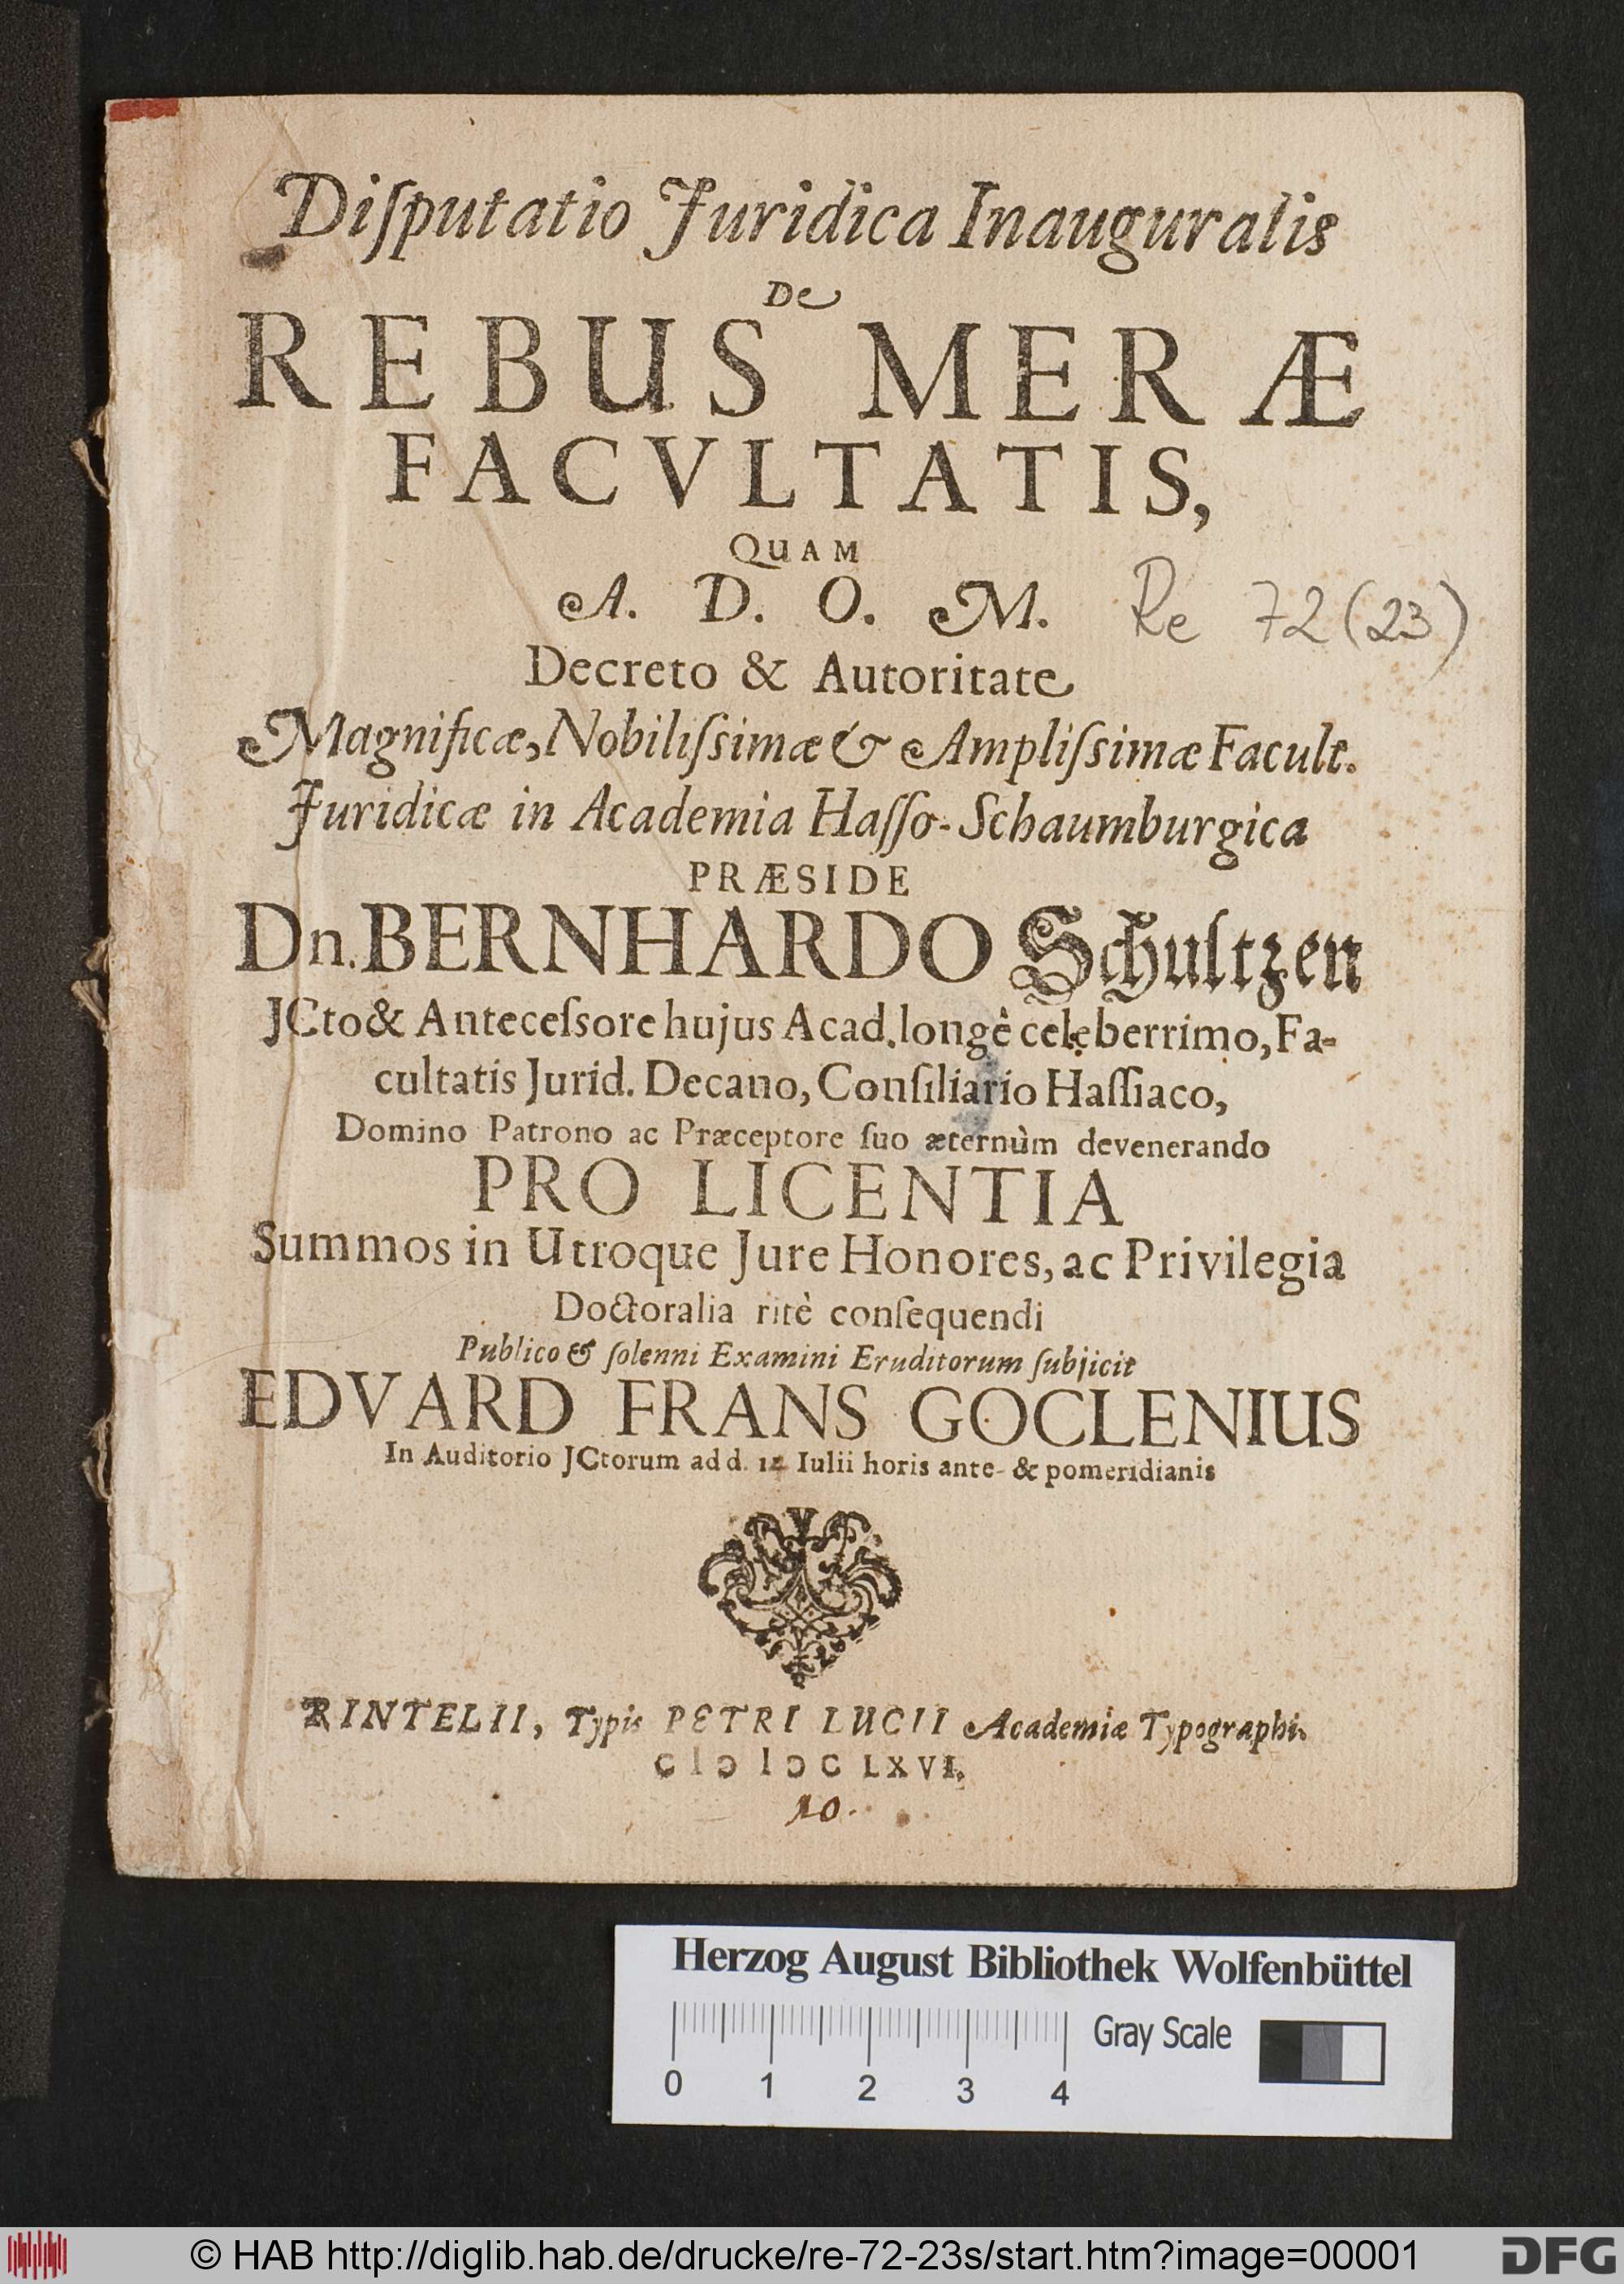 Diſputatio Juridica Inauguralis
De
REBUS MERÆ
FACVLTATIS,
QUAM
A. D. O. M.
Re 72 (23)
Decreto & Autoritate
Magnificæ, Nobiliſsimæ & Ampliſsimæ Facult.
Juridicæ in Academia Haſſo-Schaumburgica
PRÆSIDE
Dn. BERNHARDO Schultzen
JCto & Anteceſsore hujus Acad. longè celeberrimo, Fa-
cultatis Jurid. Decano, Conſiliario Haſſiaco,
Domino Patrono ac Præceptore ſuo æternùm devenerando
PRO LICENTIA
Summos in Utroque Jure Honores, ac Privilegia
Doctoralia ritè conſequendi
Publico & ſolenni Examini Eruditorum ſubjicit
EDVARD FRANS GOCLENIUS
In Auditorio JCtorum ad d. Iulii horis ante- & pomeridianis
RINTELII, Typis PETRI LUCII Academiæ Typographi.
CIↃ IↃC LXVI.
10.
Herzog August Bibliothek Wolfenbüttel
Gray Scale
0 1 2 3 4
© HAB http://diglib.hab.de/drucke/re-72-23s/start.htm?image=00001
DFG